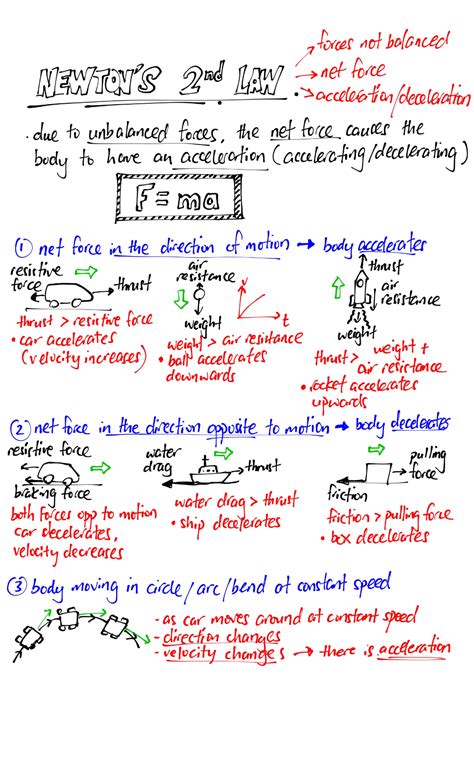 NEWTON'S 2nd LAW
→ forces not balanced
→ net force
→ acceleration/deceleration
. due to unbalanced forces, the net force causes the
body to have an acceleration (accelerating/decelerating)
F = ma
① net force in the direction of motion → body accelerates
resistive force
thrust
thrust > resistive force
• car accelerates
(velocity increases)
air resistance
weight
v
t
weight > air resistance
• ball accelerates
downwards
thrust
air resistance
weight
thrust > weight + air resistance
• rocket accelerates
upwards
② net force in the direction opposite to motion → body decelerates
resistive force
braking force
both forces opp to motion
car decelerates,
velocity decreases
water drag
thrust
water drag > thrust
• ship decelerates
pulling force
friction
friction > pulling force
• box decelerates
③ body moving in circle/arc/bend at constant speed
- as car moves around at constant speed
- direction changes
- velocity changes → there is acceleration